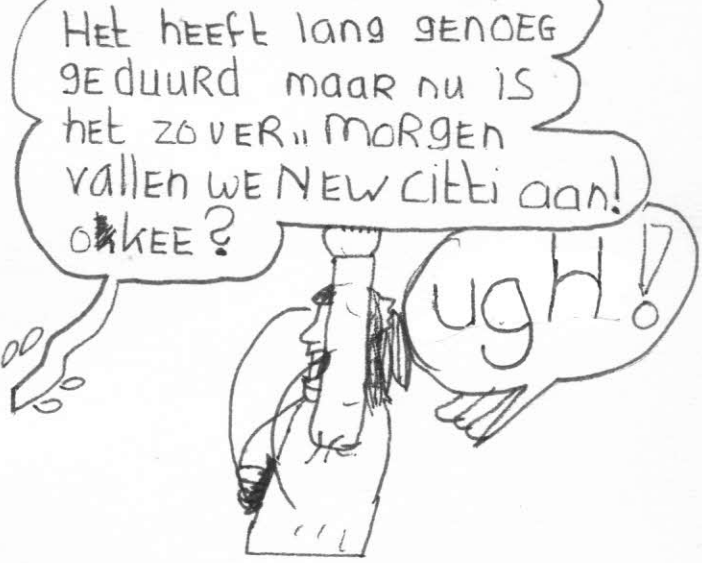 HEt hEEft lang gENOEG
gEduuRd maaR nu is
hEt zo vER,, moRgEn
vallEn wE NEW Citti aan!
okKEE?
ugH!